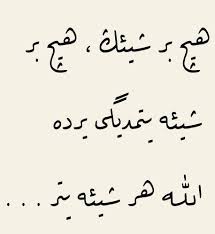 هیچ بر شیئڭ ، هیچ بر
شیئه یتمدیگی یرده
الله هر شیئه یتر . . .